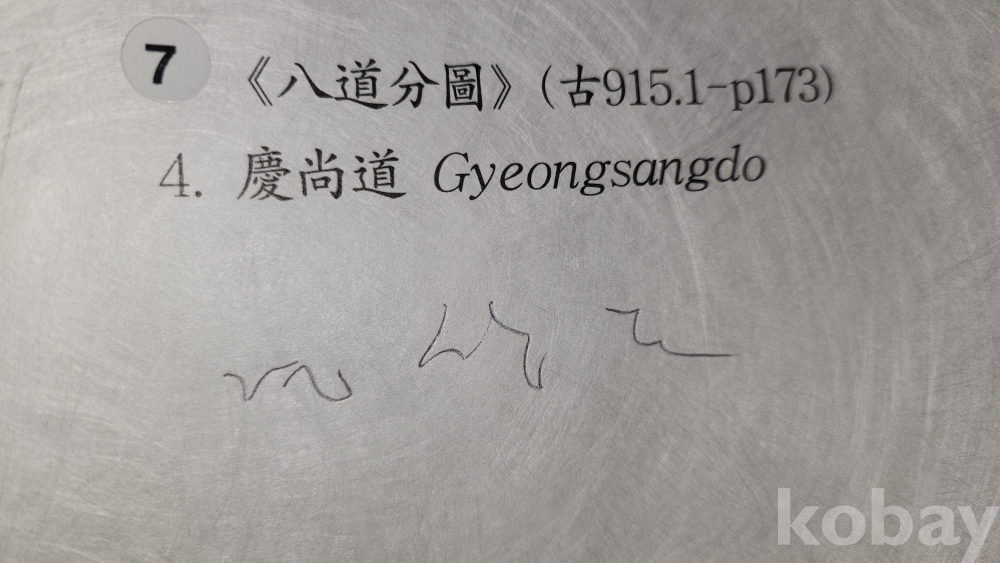 7 《八道分圖》 (古915.1-p173)
4. 慶尚道 Gyeongsangdo
kobay